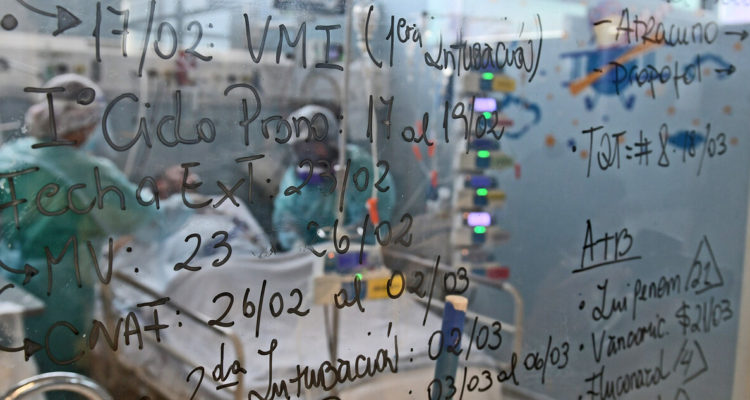 17/02: VMI (1era Intubación)
I° Ciclo Prono: 17 al 19/02
Fecha ExT: 23/02
MV: 23 - 26/02
CNAF: 26/02 al 02/03
2da Intubación: 02/03
03/03 al 06/03
- Atracurio
- Propofol
• TQT = # 8 - 18/03
ATB
• Imipenem 21
• Vancomic. 21/03
• Fluconazol 14